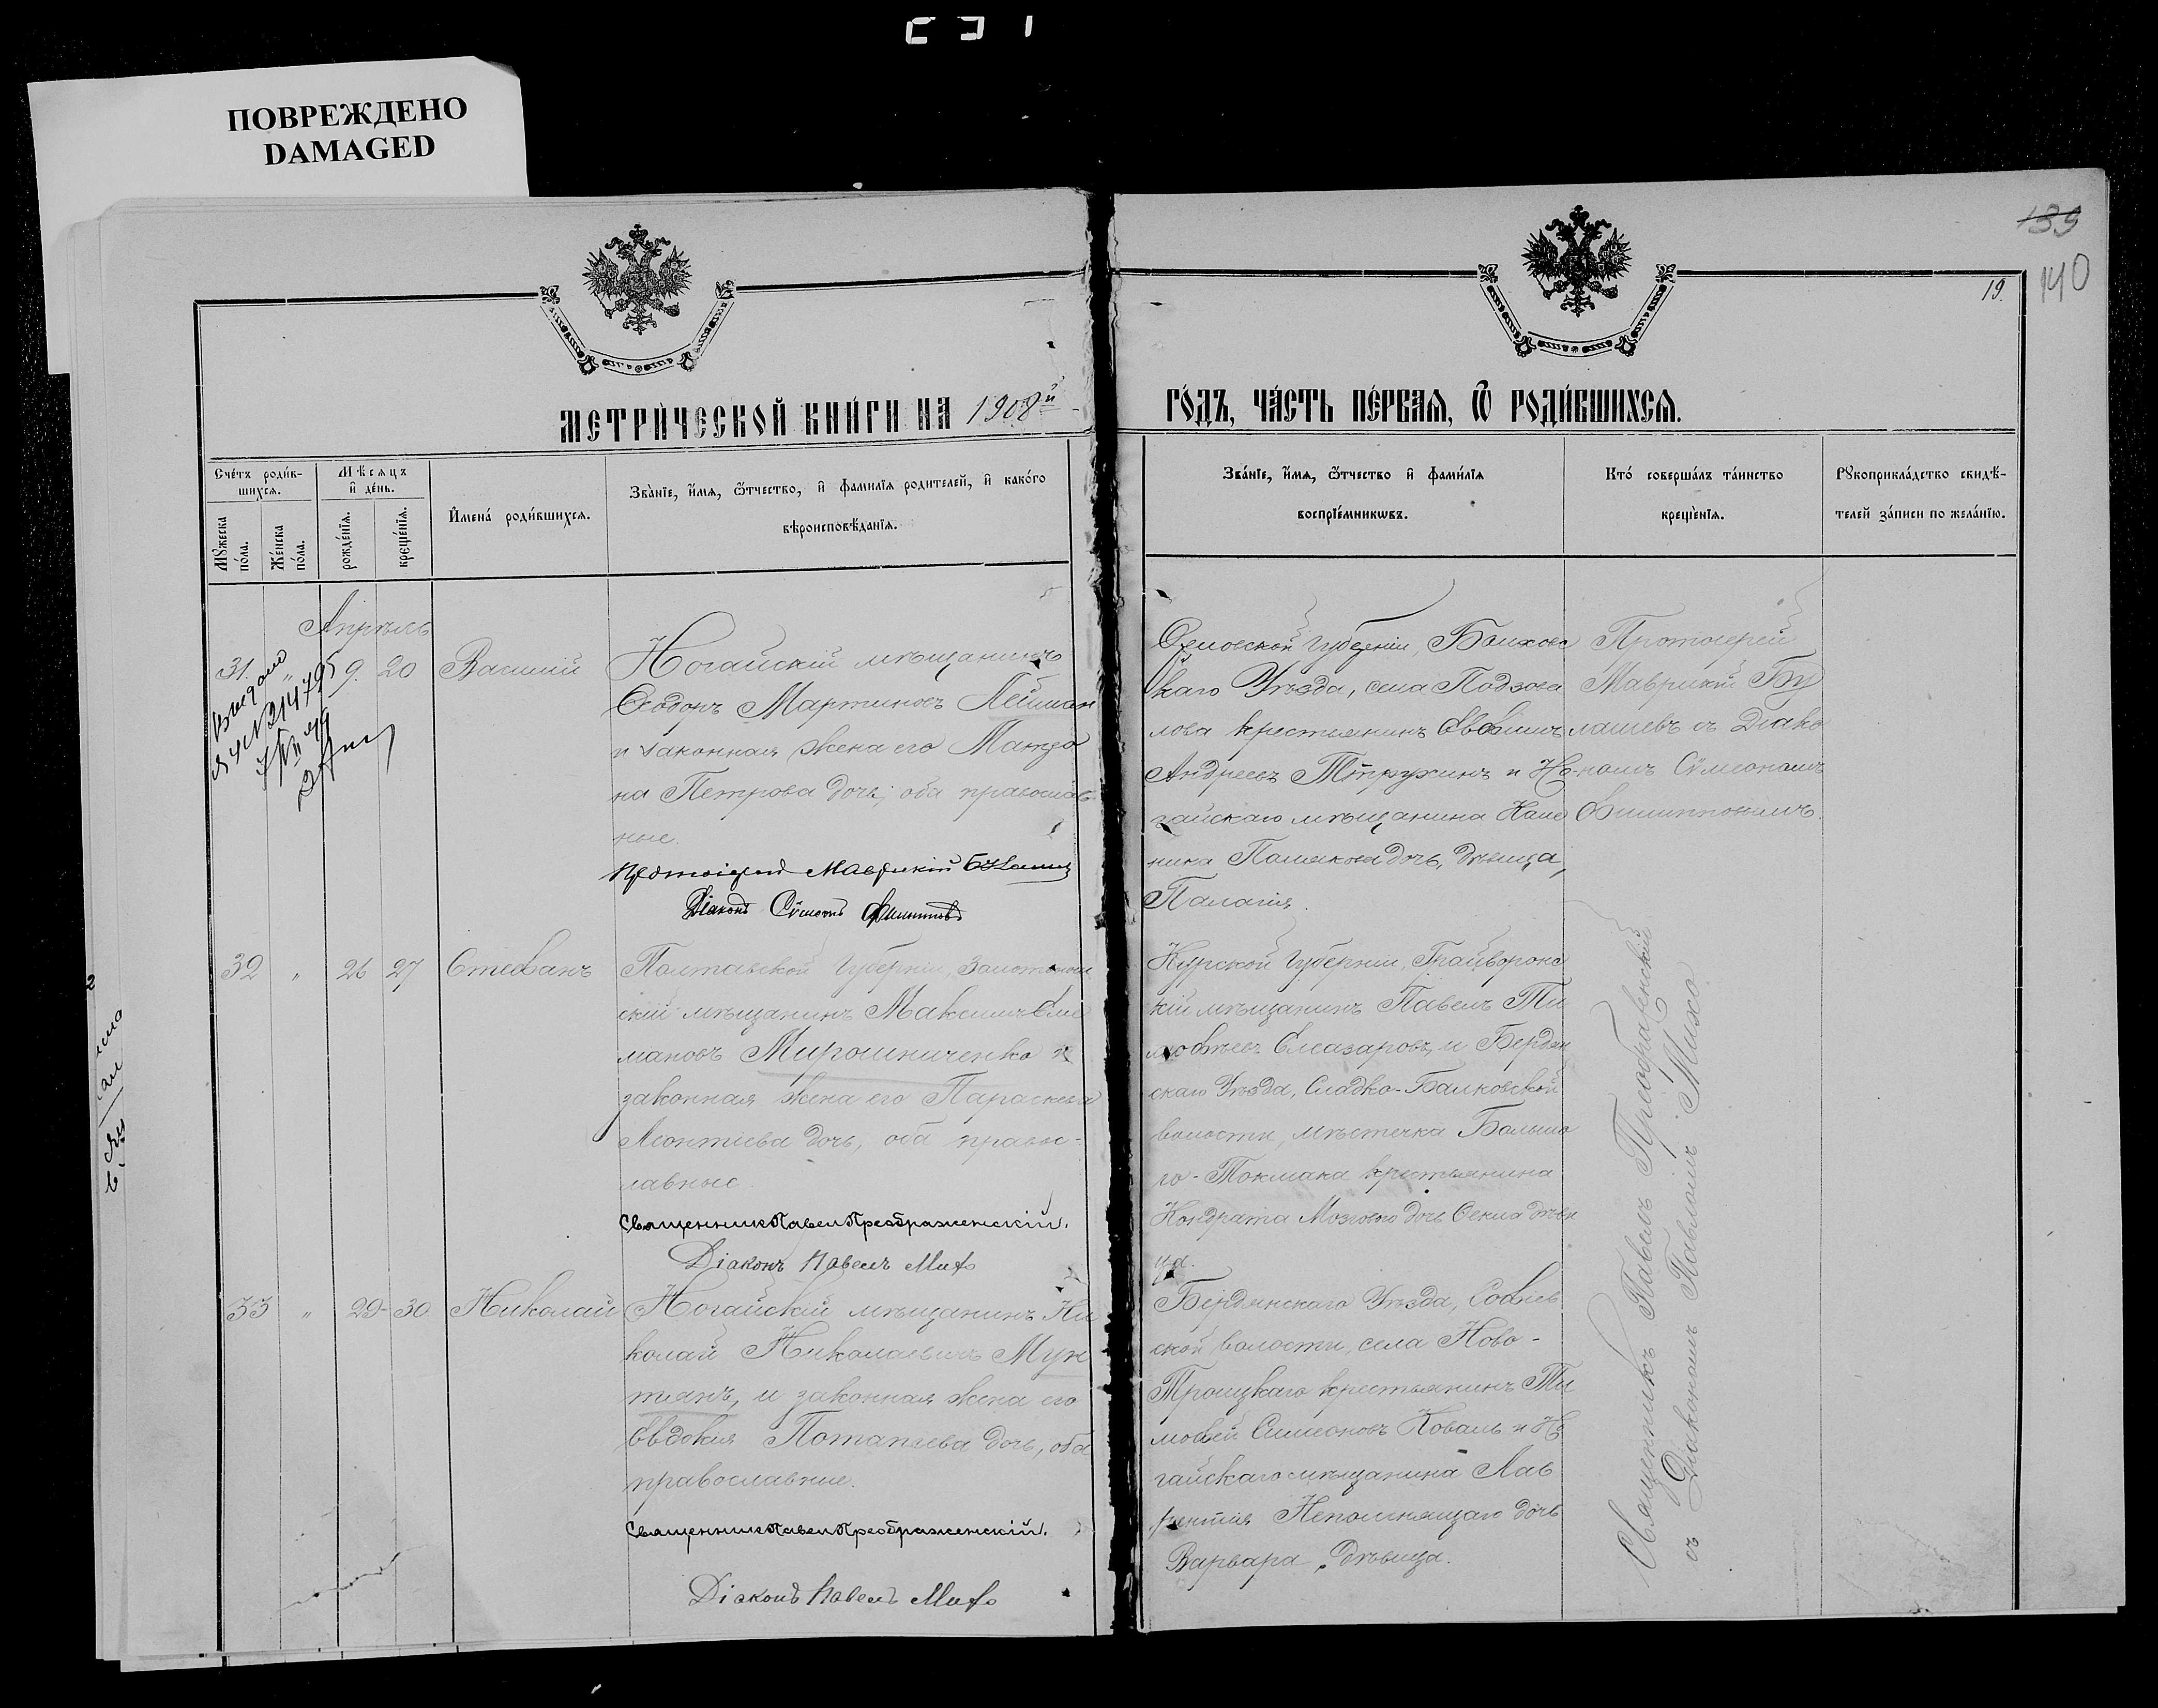 ПОВРЕЖДЕНО
DAMAGED
139
140
19.
МЕТРИ́ЧЕСКОЙ КНИ́ГИ НА 1908й
ГО́ДЪ, ЧА́СТЬ ПЕ́РВАѦ, Ѿ РОДИ́ВШИХСѦ.
Сче́тъ роди́в-
шихсѧ.
Мꙋ́жеска по́ла.
Же́нска по́ла.
Мѣ́сѧцъ и де́нь.
рожде́нїѧ.
креще́нїѧ.
Имена́ роди́вшихсѧ.
Зва́нїе, и́мѧ, ѻ́тчество, и фами́лїѧ родителей, и како́го
вѣроисповѣ́данїѧ.
Зва́нїе, и́мѧ, ѻ́тчество и фами́лїѧ
воспрїе́мникѡвъ.
Кто́ соверша́лъ та́инство
креще́нїѧ.
Рꙋкоприкла́дство свидѣ́-
телей за́писи по жела́нїю.
Апрѣль
31. " 9. 20 Василій
Ногайскій мѣщанинъ
Ѳеодоръ Мартиновъ Лейман
и законная жена его Матро
на Петрова дочь; оба православ
ные.
Протоіерей Маврикій Булашевъ
Діаконъ Сѵмеонъ Филипповъ
Орловской губерніи, Болховс
каго Уѣзда, села Подзова
лова крестьянинъ Евфимъ
Андреевъ и Но
гайскаго мѣщанина
дочь, дѣвица,
Палагія.
Протоіерей
Маврикій Бу
лашевъ съ Діако
номъ Сѵмеономъ
Филипповымъ.
32 " 26 27 Стефанъ
Полтавской губерніи, Золотонош
скій мѣщанинъ Максимъ Еме
мановъ Мирошниченко и
законная жена его Параскева
Леонтіева дочь, оба правос-
лавные
Священникъ Павелъ Преображенскій.
Діаконъ Павелъ Михо
Курской губерніи, Грайворонс
кій мѣщанинъ Павелъ Ти
моѳеевъ Елеазаровъ, и Бердян
скаго Уѣзда, Сладко-Балковской
волости, мѣстечка Большо
го-Токмака крестьянина
Кондрата Мозгового дочь Ѳекла дѣви
ца.
33 " 29 30 Николай
Ногайскій мѣщанинъ Ни
колай Николаевичъ Мун
тянъ, и законная жена его
Евдокія Потапіева дочь, оба
православные.
Священникъ Павелъ Преображенскій.
Діаконъ Павелъ Михо
Бердянскаго Уѣзда, Софіев
ской волости, села Ново-
Троицкаго крестьянинъ Ти
моѳей Симеоновъ Коваль и Но
гайскаго мѣщанина Лав
рентія Непомнящаго дочь
Варвара, дѣвица.
Священникъ Павелъ Преображенскій
съ Діакономъ Павломъ Михо